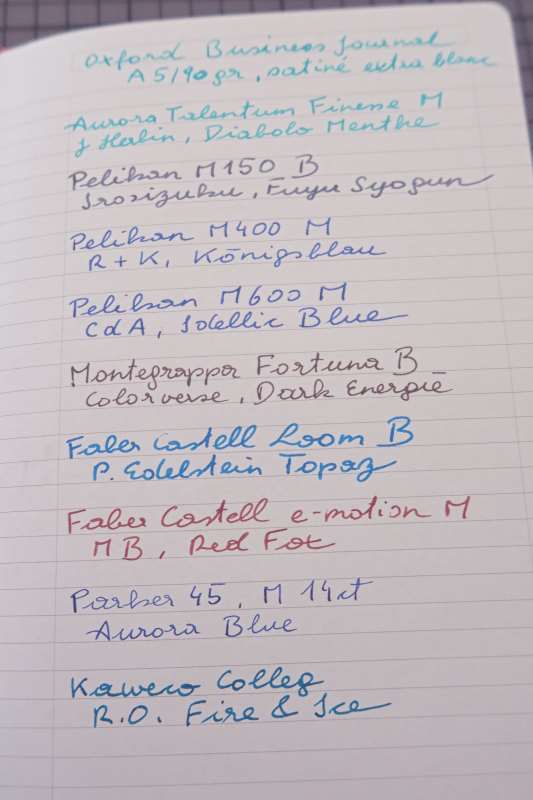 Oxford Business Journal
A5/90gr, satiné extra blanc
Aurora Talentum Finesse M
J Herbin, Diabolo Menthe
Pelikan M150 B
Irosizuku, Fuyu Syogun
Pelikan M400 M
R + K, Königsblau
Pelikan M600 M
CdA, Idellic Blue
Montegrappa Fortuna B
Colorverse, Dark Energie
Faber Castell Loom B
P. Edelstein Topaz
Faber Castell e-motion M
MB, Red Fox
Parker 45, M 14ct
Aurora Blue
Kaweco Colleg
R.O. Fire & Ice